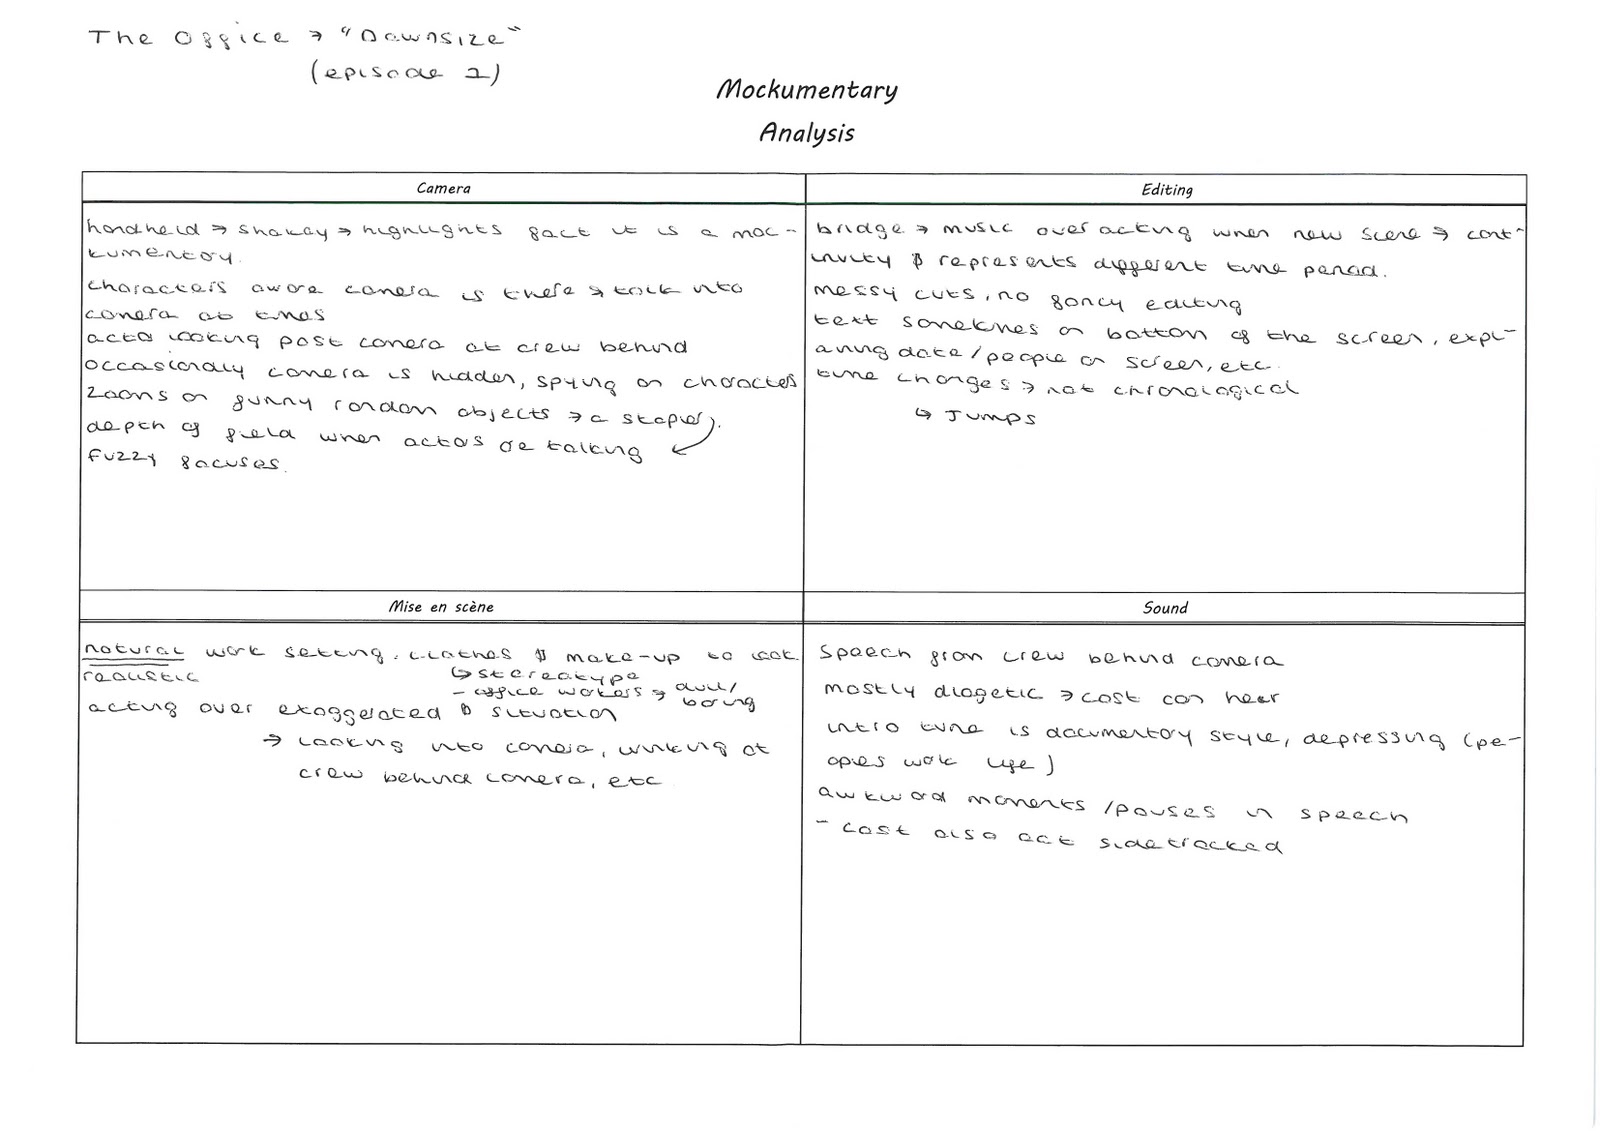 The Office → "Downsize"
(episode 1)
Mockumentary
Analysis
Camera
handheld → shakey → highlights fact it is a moc-
kumentary.
characters aware camera is there → talk into
camera at times
actors looking past camera at crew behind
occasionally camera is hidden, spying on characters
zooms on funny random objects → a stapler).
depth of field when actors are talking
fuzzy focuses.
Editing
bridge → music over acting when new scene → cont-
inuity & represents different time period.
messy cuts, no fancy editing
text sometimes on bottom of the screen, expl-
aning date/people on screen, etc.
time changes → not chronological
↳ Jumps
Mise en scène
natural work setting. clothes & make-up to look
realistic
↳ stereotype
- office workers → dull/
boring
acting over exaggerated & situation
→ looking into camera, winking at
crew behind camera, etc
Sound
Speech from crew behind camera
mostly diagetic → cast can hear
intro tune is documentary style, depressing (pe-
oples work life)
awkward moments/pauses in speech
- cast also act sidetracked